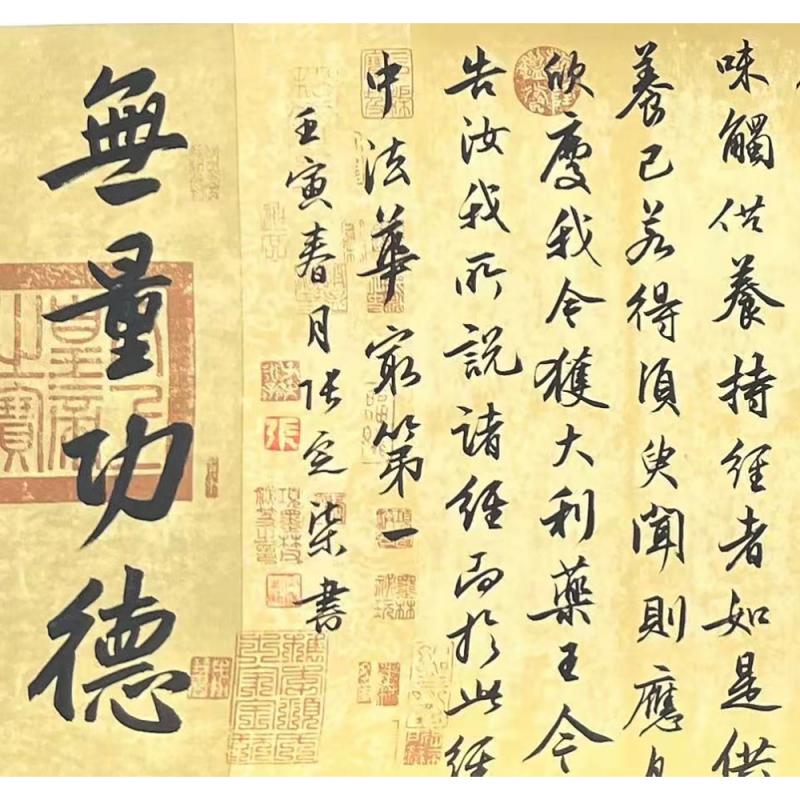 味觸供養持經者如是供
養已若得須臾聞則應
欣慶我今獲大利藥王今
告汝我所說諸經而於此經
中法華最第一
壬寅春月張定柴書
無量功德